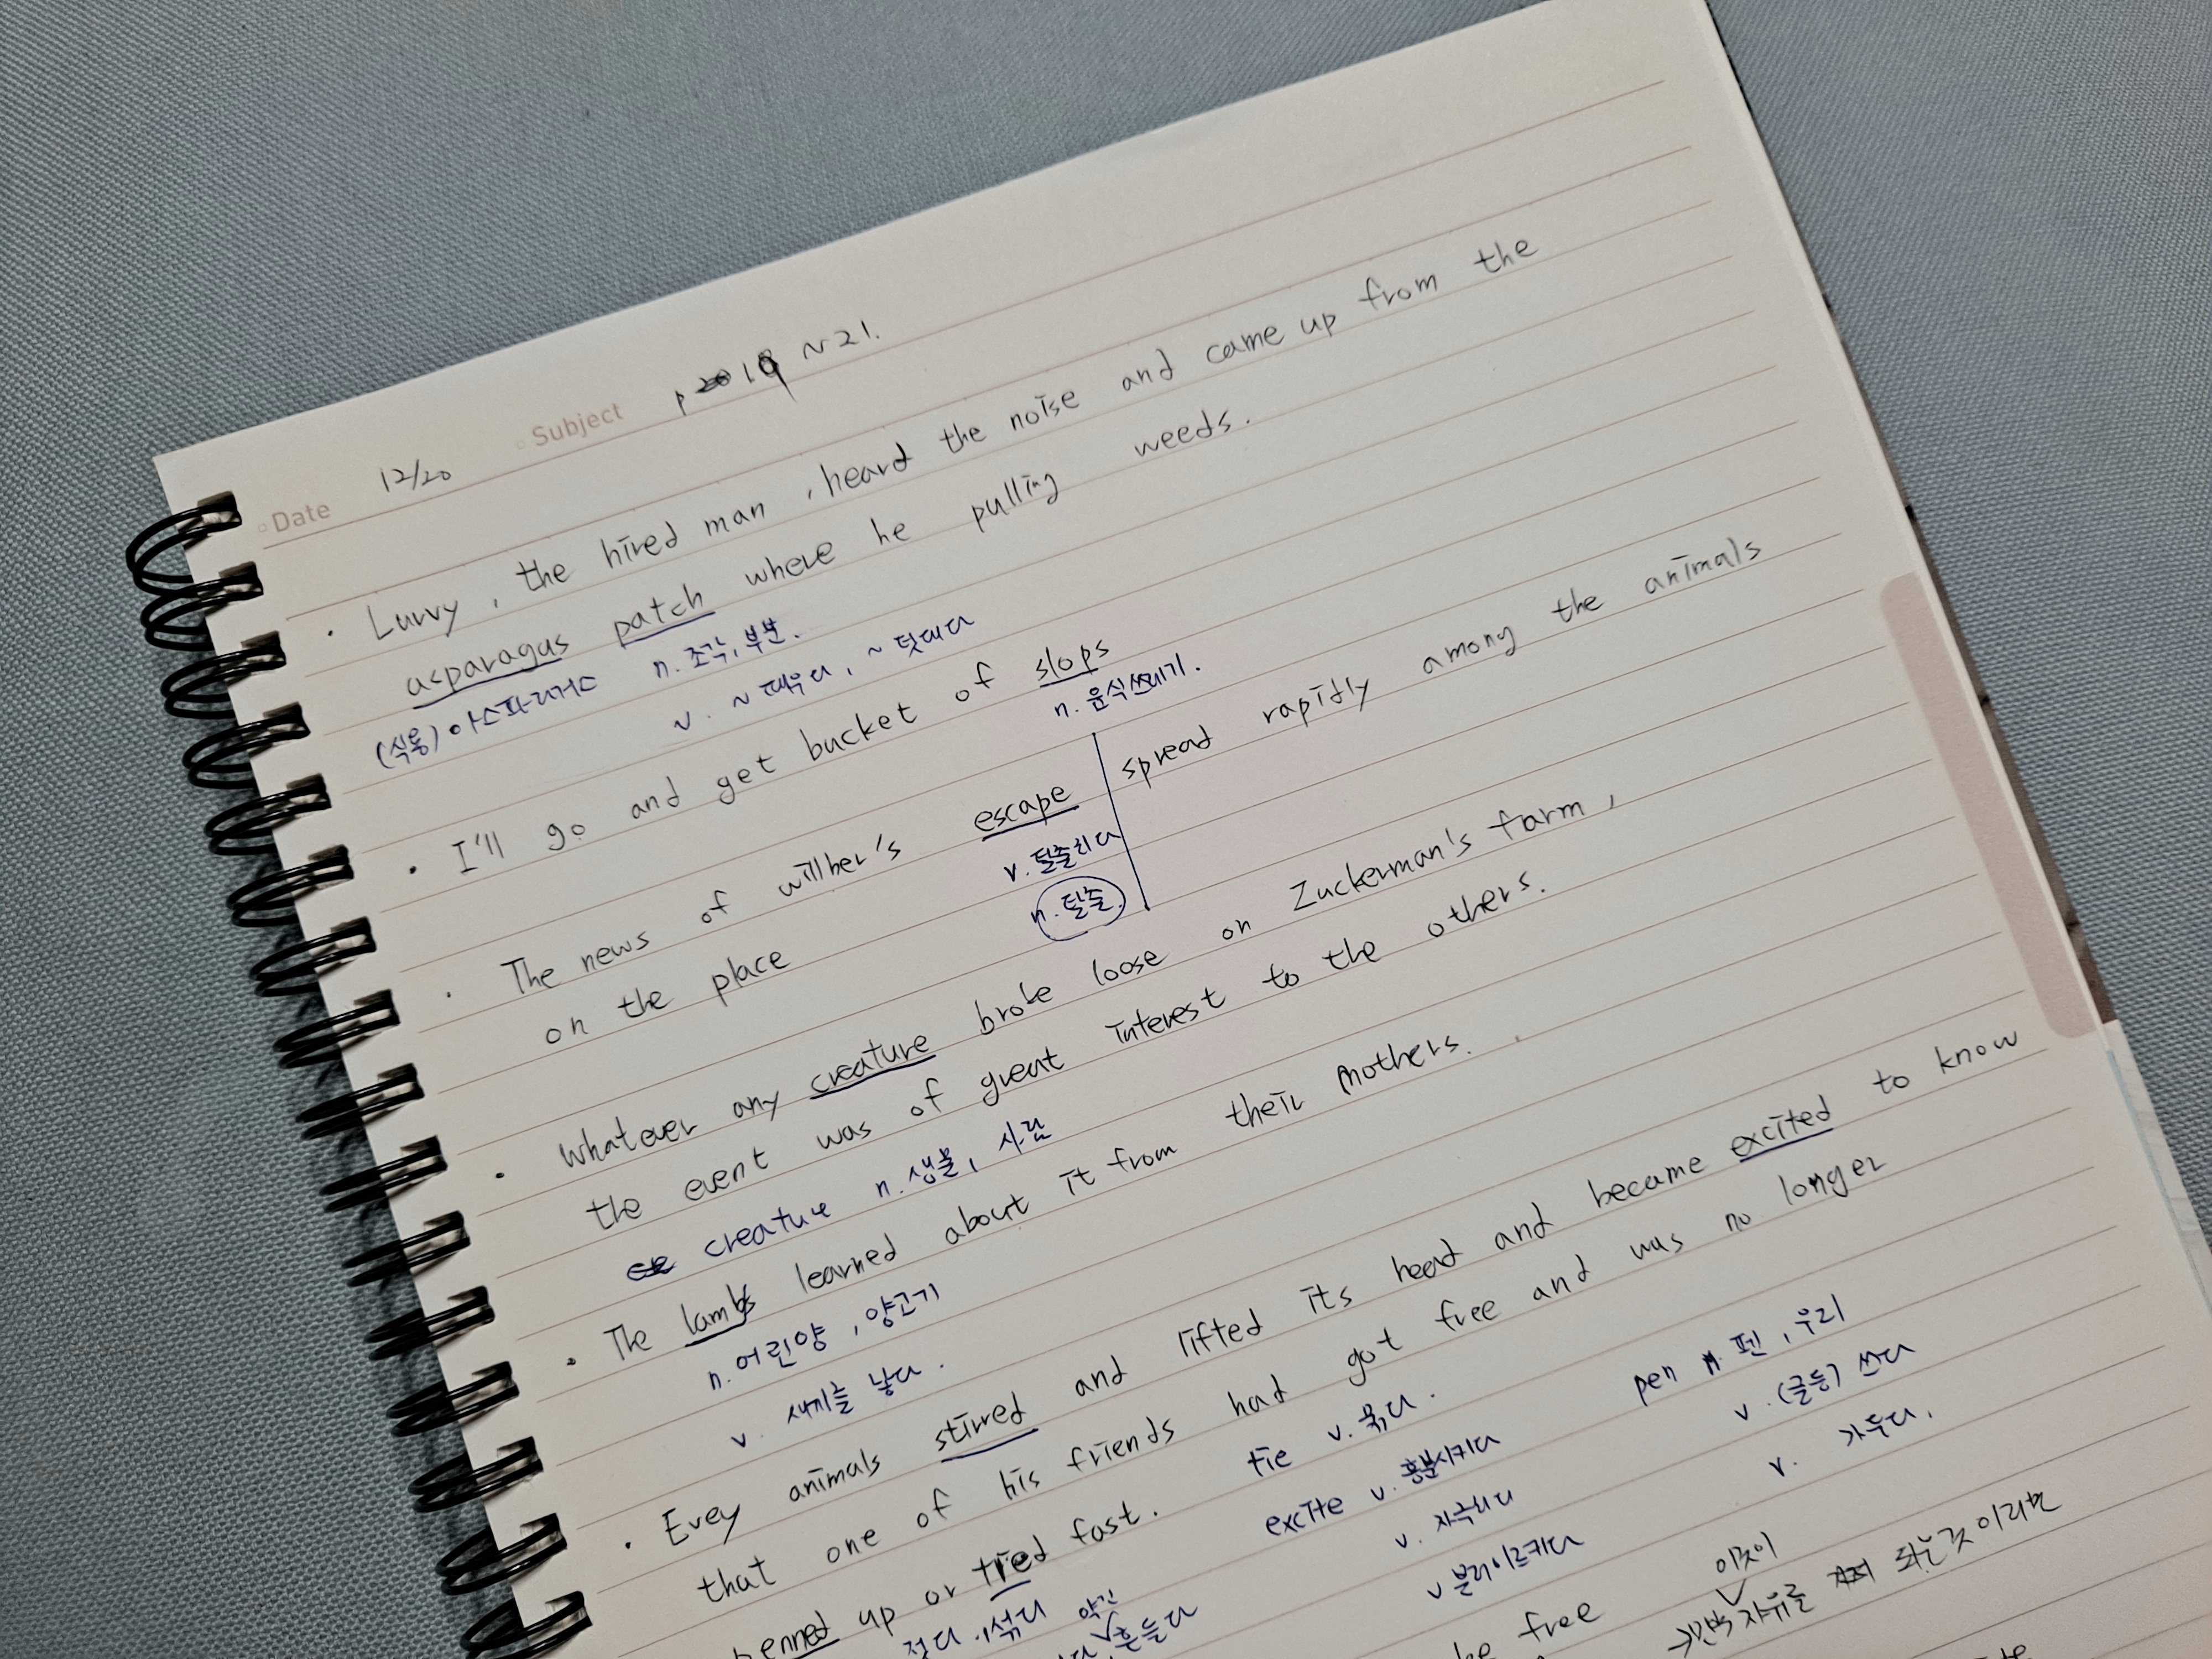 Date 12/20 Subject p 19 ~ 21.
• Lurvy, the hired man, heard the noise and came up from the
asparagus patch where he pulling weeds.
(식용) 아스파라거스 n. 조각, 부분.
v. ~ 때우다, ~ 덧대다
• I'll go and get bucket of slops
n. 음식쓰레기.
• The news of wilber's escape spread rapidly among the animals
v. 탈출하다
n. 탈출.
on the place
• Whatever any creature broke loose on Zuckerman's farm,
the event was of great interest to the others.
creature n. 생물, 사람
• The lambs learned about it from their mothers.
n. 어린양, 양고기
v. 새끼를 낳다.
• Evey animals stirred and lifted its head and became excited to know
that one of his friends had got free and was no longer
penned up or tied fast. tie v. 묶다. pen n. 펜, 우리
excite v. 흥분시키다 v. (글등) 쓰다
v. 자극하다 v. 가두다.
v 불러일으키다
젓다, 섞다 약간
흔들다
be free 이것이
자유를 되는것이라면